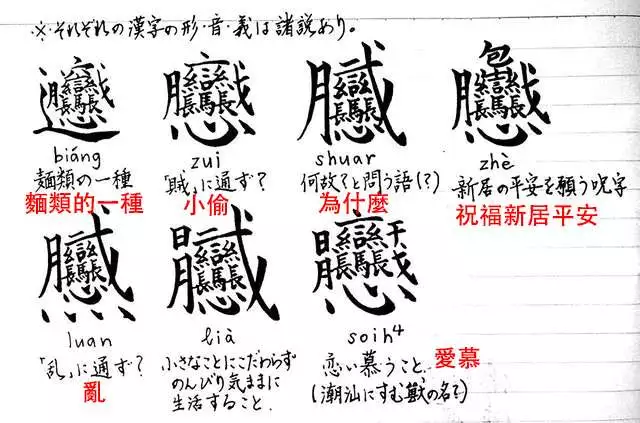 ※それぞれの漢字の形・音・義は諸説あり。
biáng
麵類の一種
麵類的一種
zui
「賊」に通ず?
小偷
shuar
何故?と問う語(?)
為什麼
zhè
新居の平安を願う呪字
祝福新居平安
luan
「乱」に通ず?
亂
lià
小さなことにこだわらず
のんびり気ままに
生活すること.
soih⁴
恋い慕うこと.
愛慕
(潮汕にすむ獣の名?)